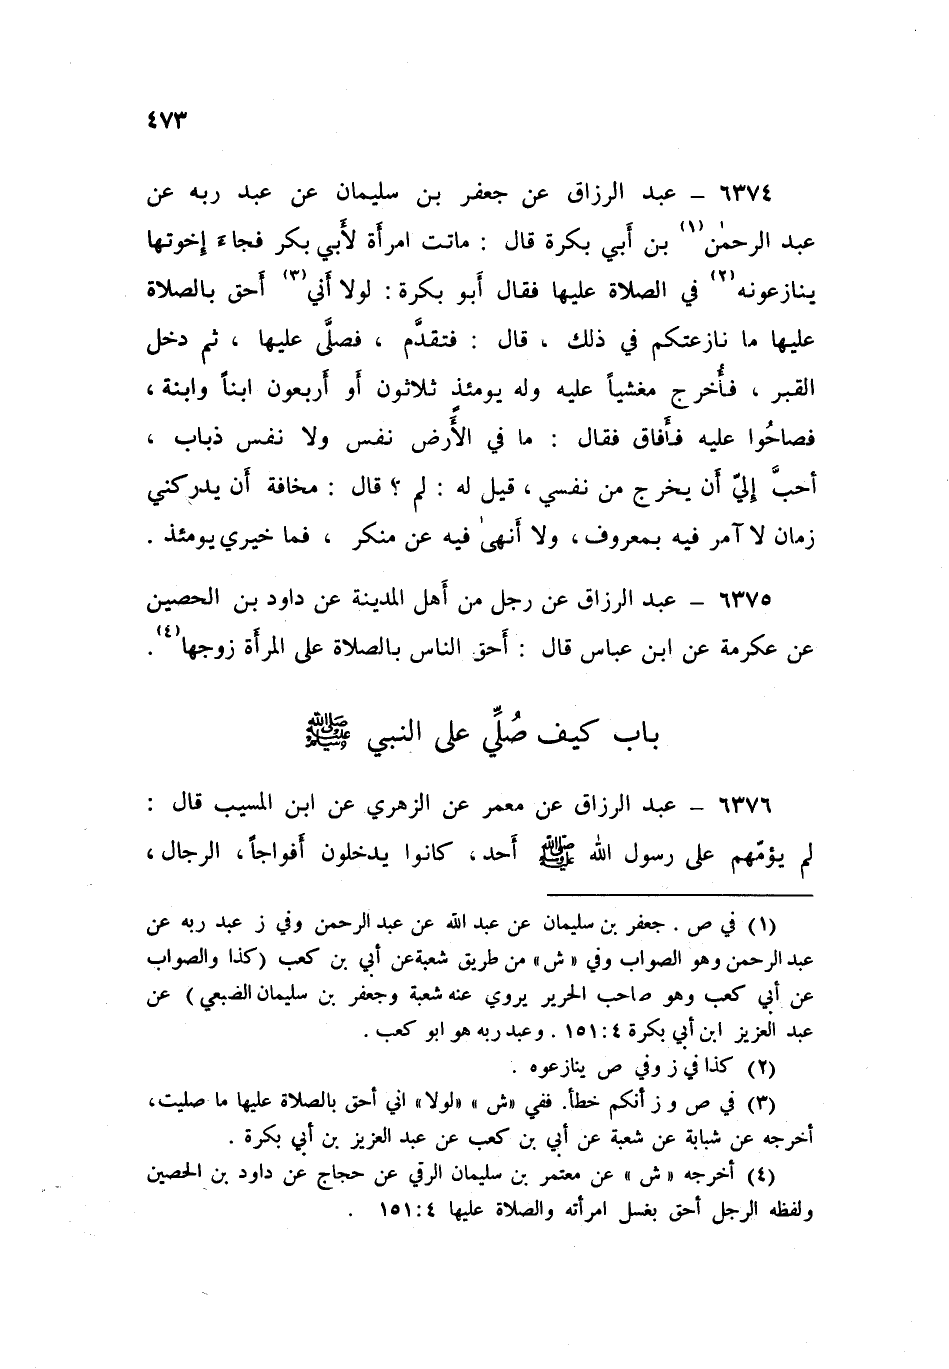 ٤٧٣
٦٣٧٤ – عبد الرزاق عن جعفر بن سليمان عن عبد ربه عن
عبد الرحمٰن(١) بن أبي بكرة قال : ماتت امرأة لأبي بكر فجاء إخوتها
ينازعونه(٢) في الصلاة عليها فقال أبو بكرة : لولا أني(٣) أحق بالصلاة
عليها ما نازعتكم في ذلك ، قال : فتقدَّم ، فصلَّى عليها ، ثم دخل
القبر ، فأُخرج مغشياً عليه وله يومئذٍ ثلاثون أو أربعون ابناً وابنة ،
فصاحُوا عليه فأَفاق فقال : ما في الأَرض نفس ولا نفس ذباب ،
أحبَّ إليّ أن يخرج من نفسي ، قيل له : لم ؟ قال : مخافة أن يدركني
زمان لا آمر فيه بمعروف ، ولا أنهىٰ فيه عن منكر ، فما خيري يومئذ .
٦٣٧٥ – عبد الرزاق عن رجل من أهل المدينة عن داود بن الحصين
عن عكرمة عن ابن عباس قال : أحق الناس بالصلاة على المرأة زوجها(٤) .
باب كيف صُلِّي على النبي ﷺ
٦٣٧٦ – عبد الرزاق عن معمر عن الزهري عن ابن المسيب قال :
لم يؤمّهم على رسول الله ﷺ أحد ، كانوا يدخلون أفواجاً ، الرجال ،
(١) في ص . جعفر بن سليمان عن عبد الله عن عبد الرحمن وفي ز عبد ربه عن
عبد الرحمن وهو الصواب وفي « ش » من طريق شعبة عن أبي بن كعب (كذا والصواب
عن أبي كعب وهو صاحب الحرير يروي عنه شعبة وجعفر بن سليمان الضبعي) عن
عبد العزيز ابن أبي بكرة ٤ : ١٥١ . وعبد ربه هو ابو كعب .
(٢) كذا في ز وفي ص ينازعوه .
(٣) في ص و ز أنكم خطأ. ففي «ش » «لولا» اني أحق بالصلاة عليها ما صليت ،
أخرجه عن شبابة عن شعبة عن أبي بن كعب عن عبد العزيز بن أبي بكرة .
(٤) أخرجه « ش » عن معتمر بن سليمان الرقي عن حجاج عن داود بن الحصين
ولفظه الرجل أحق بغسل امرأته والصلاة عليها ٤ : ١٥١ .